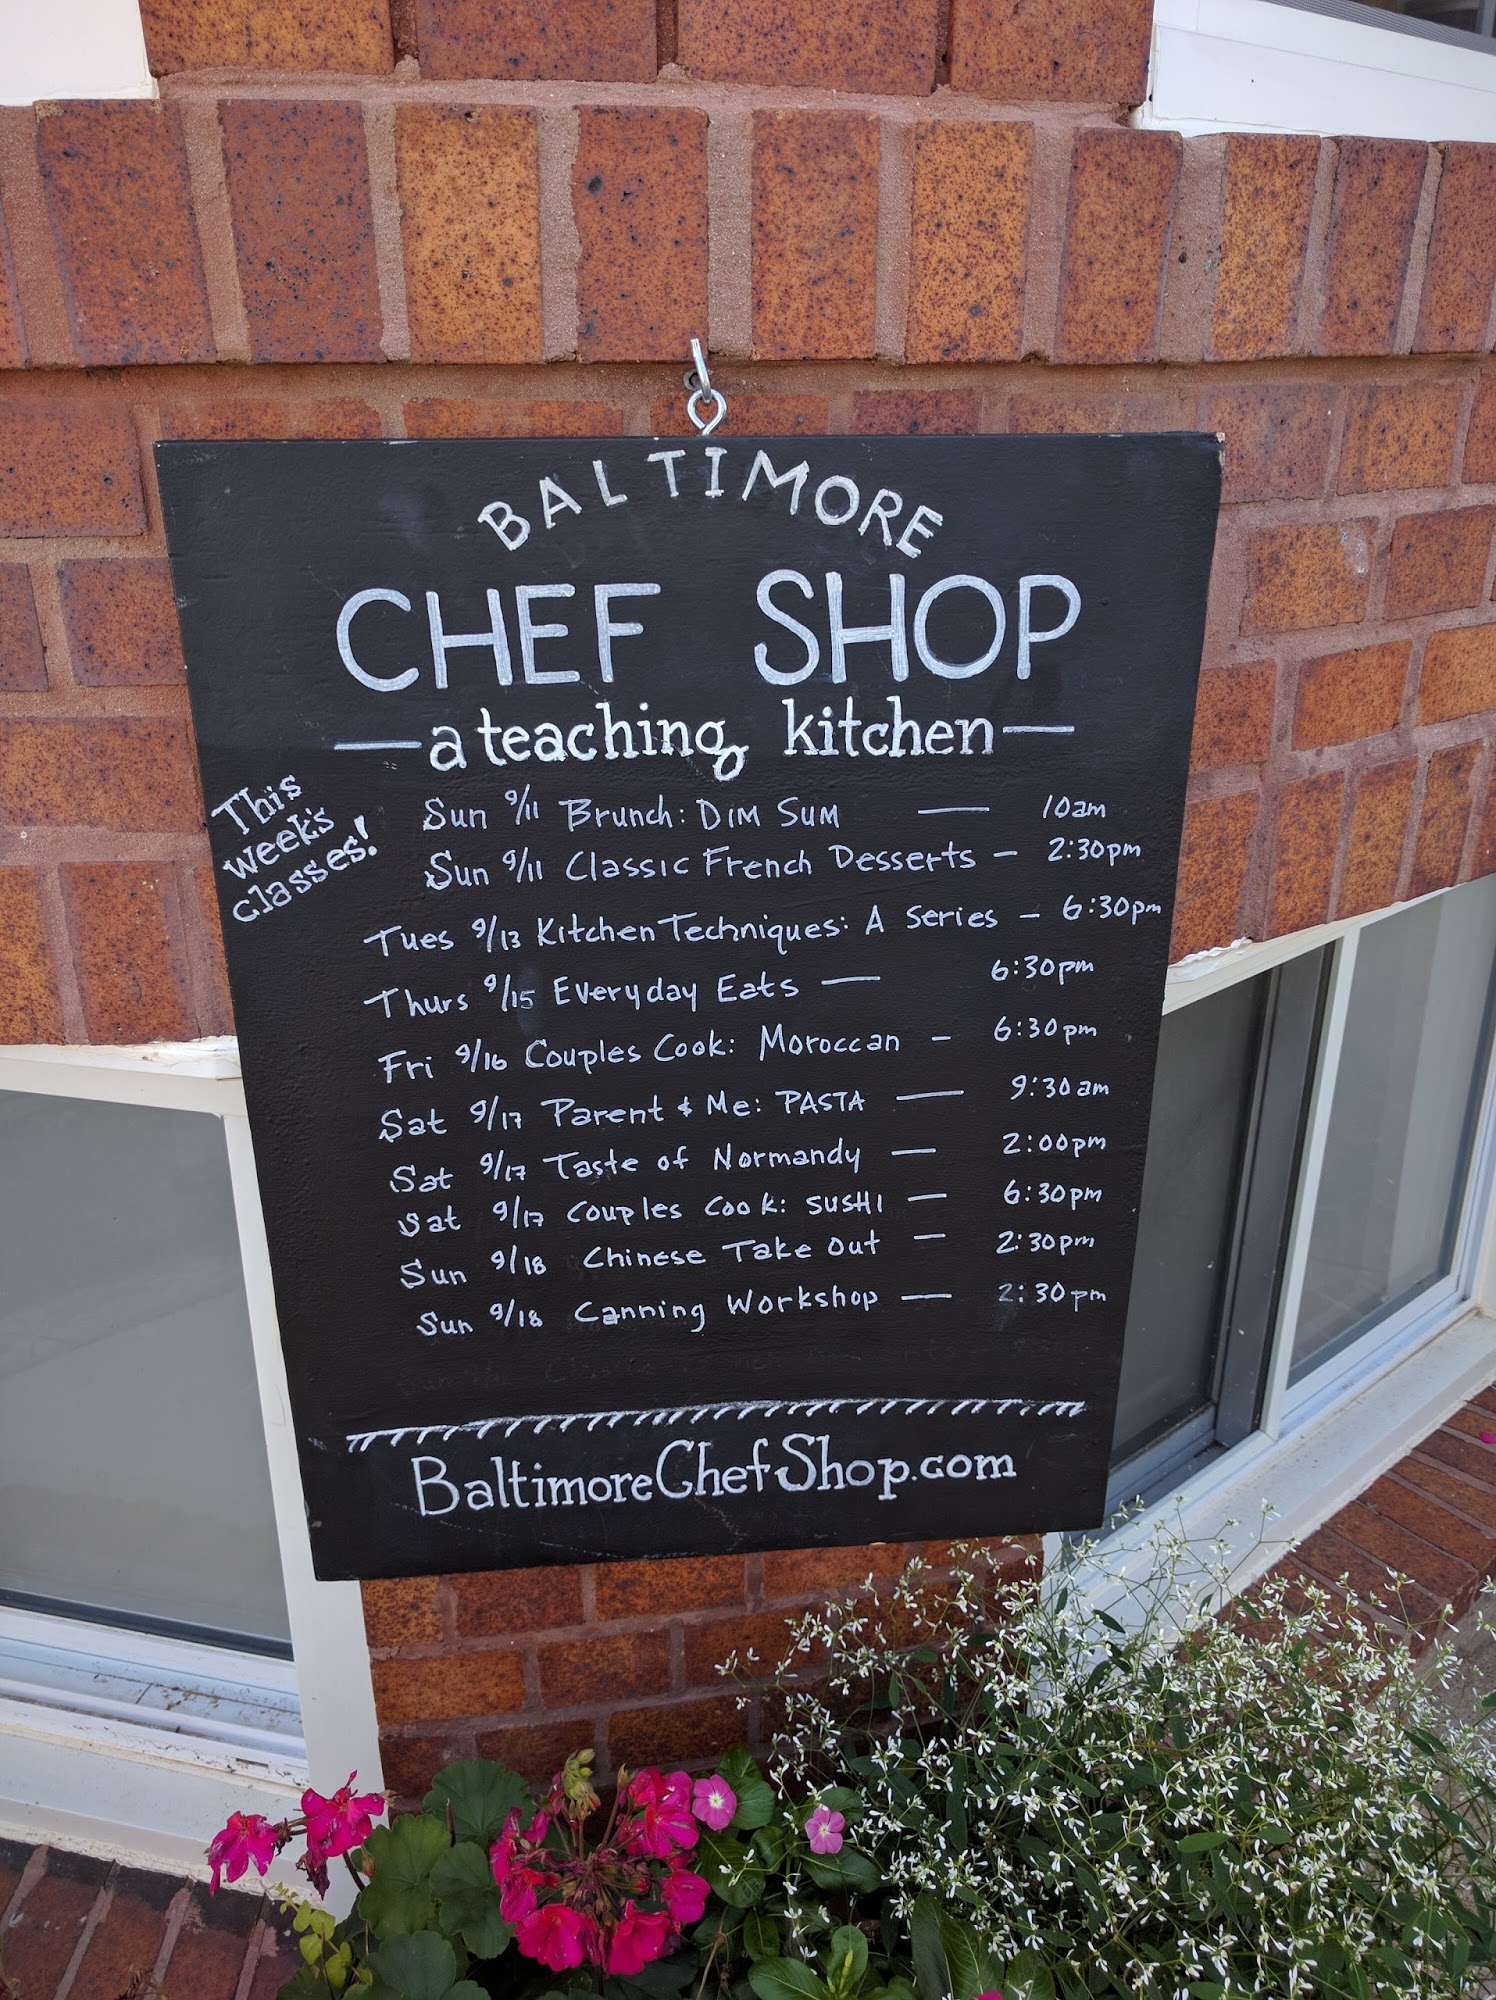 BALTIMORE
CHEF SHOP
—a teaching kitchen—
This
week's
classes!
Sun 9/11 Brunch: DIM SUM — 10am
Sun 9/11 Classic French Desserts — 2:30pm
Tues 9/13 Kitchen Techniques: A Series — 6:30pm
Thurs 9/15 Everyday Eats — 6:30pm
Fri 9/16 Couples Cook: Moroccan — 6:30pm
Sat 9/17 Parent & Me: PASTA — 9:30am
Sat 9/17 Taste of Normandy — 2:00pm
Sat 9/17 Couples Cook: SUSHI — 6:30pm
Sun 9/18 Chinese Take Out — 2:30pm
Sun 9/18 Canning Workshop — 2:30pm
BaltimoreChefShop.com